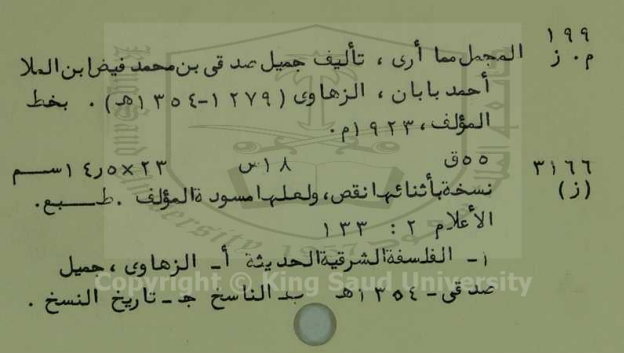 ١٩٩
م. ز المجمل مما أرى ، تأليف جميل صدقى بن محمد فيض ابن الملا
أحمد بابان ، الزهاوى (١٢٧٩-١٣٥٤هـ) . بخط
المؤلف ، ١٩٢٣م .
٣١٦٦ ٥٥ق ١٨س ٢٣×١٤٫٥سم
(ز) نسخة بأثنائها نقص ، ولعلها مسودة المؤلف . طبع .
الأعلام ٢ : ١٣٣
١- الفلسفة الشرقية الحديثة أ- الزهاوى ، جميل
صدقى - ١٣٥٤هـ ب- الناسخ جـ - تاريخ النسخ .
Copyright © King Saud University
King Saud University
1957